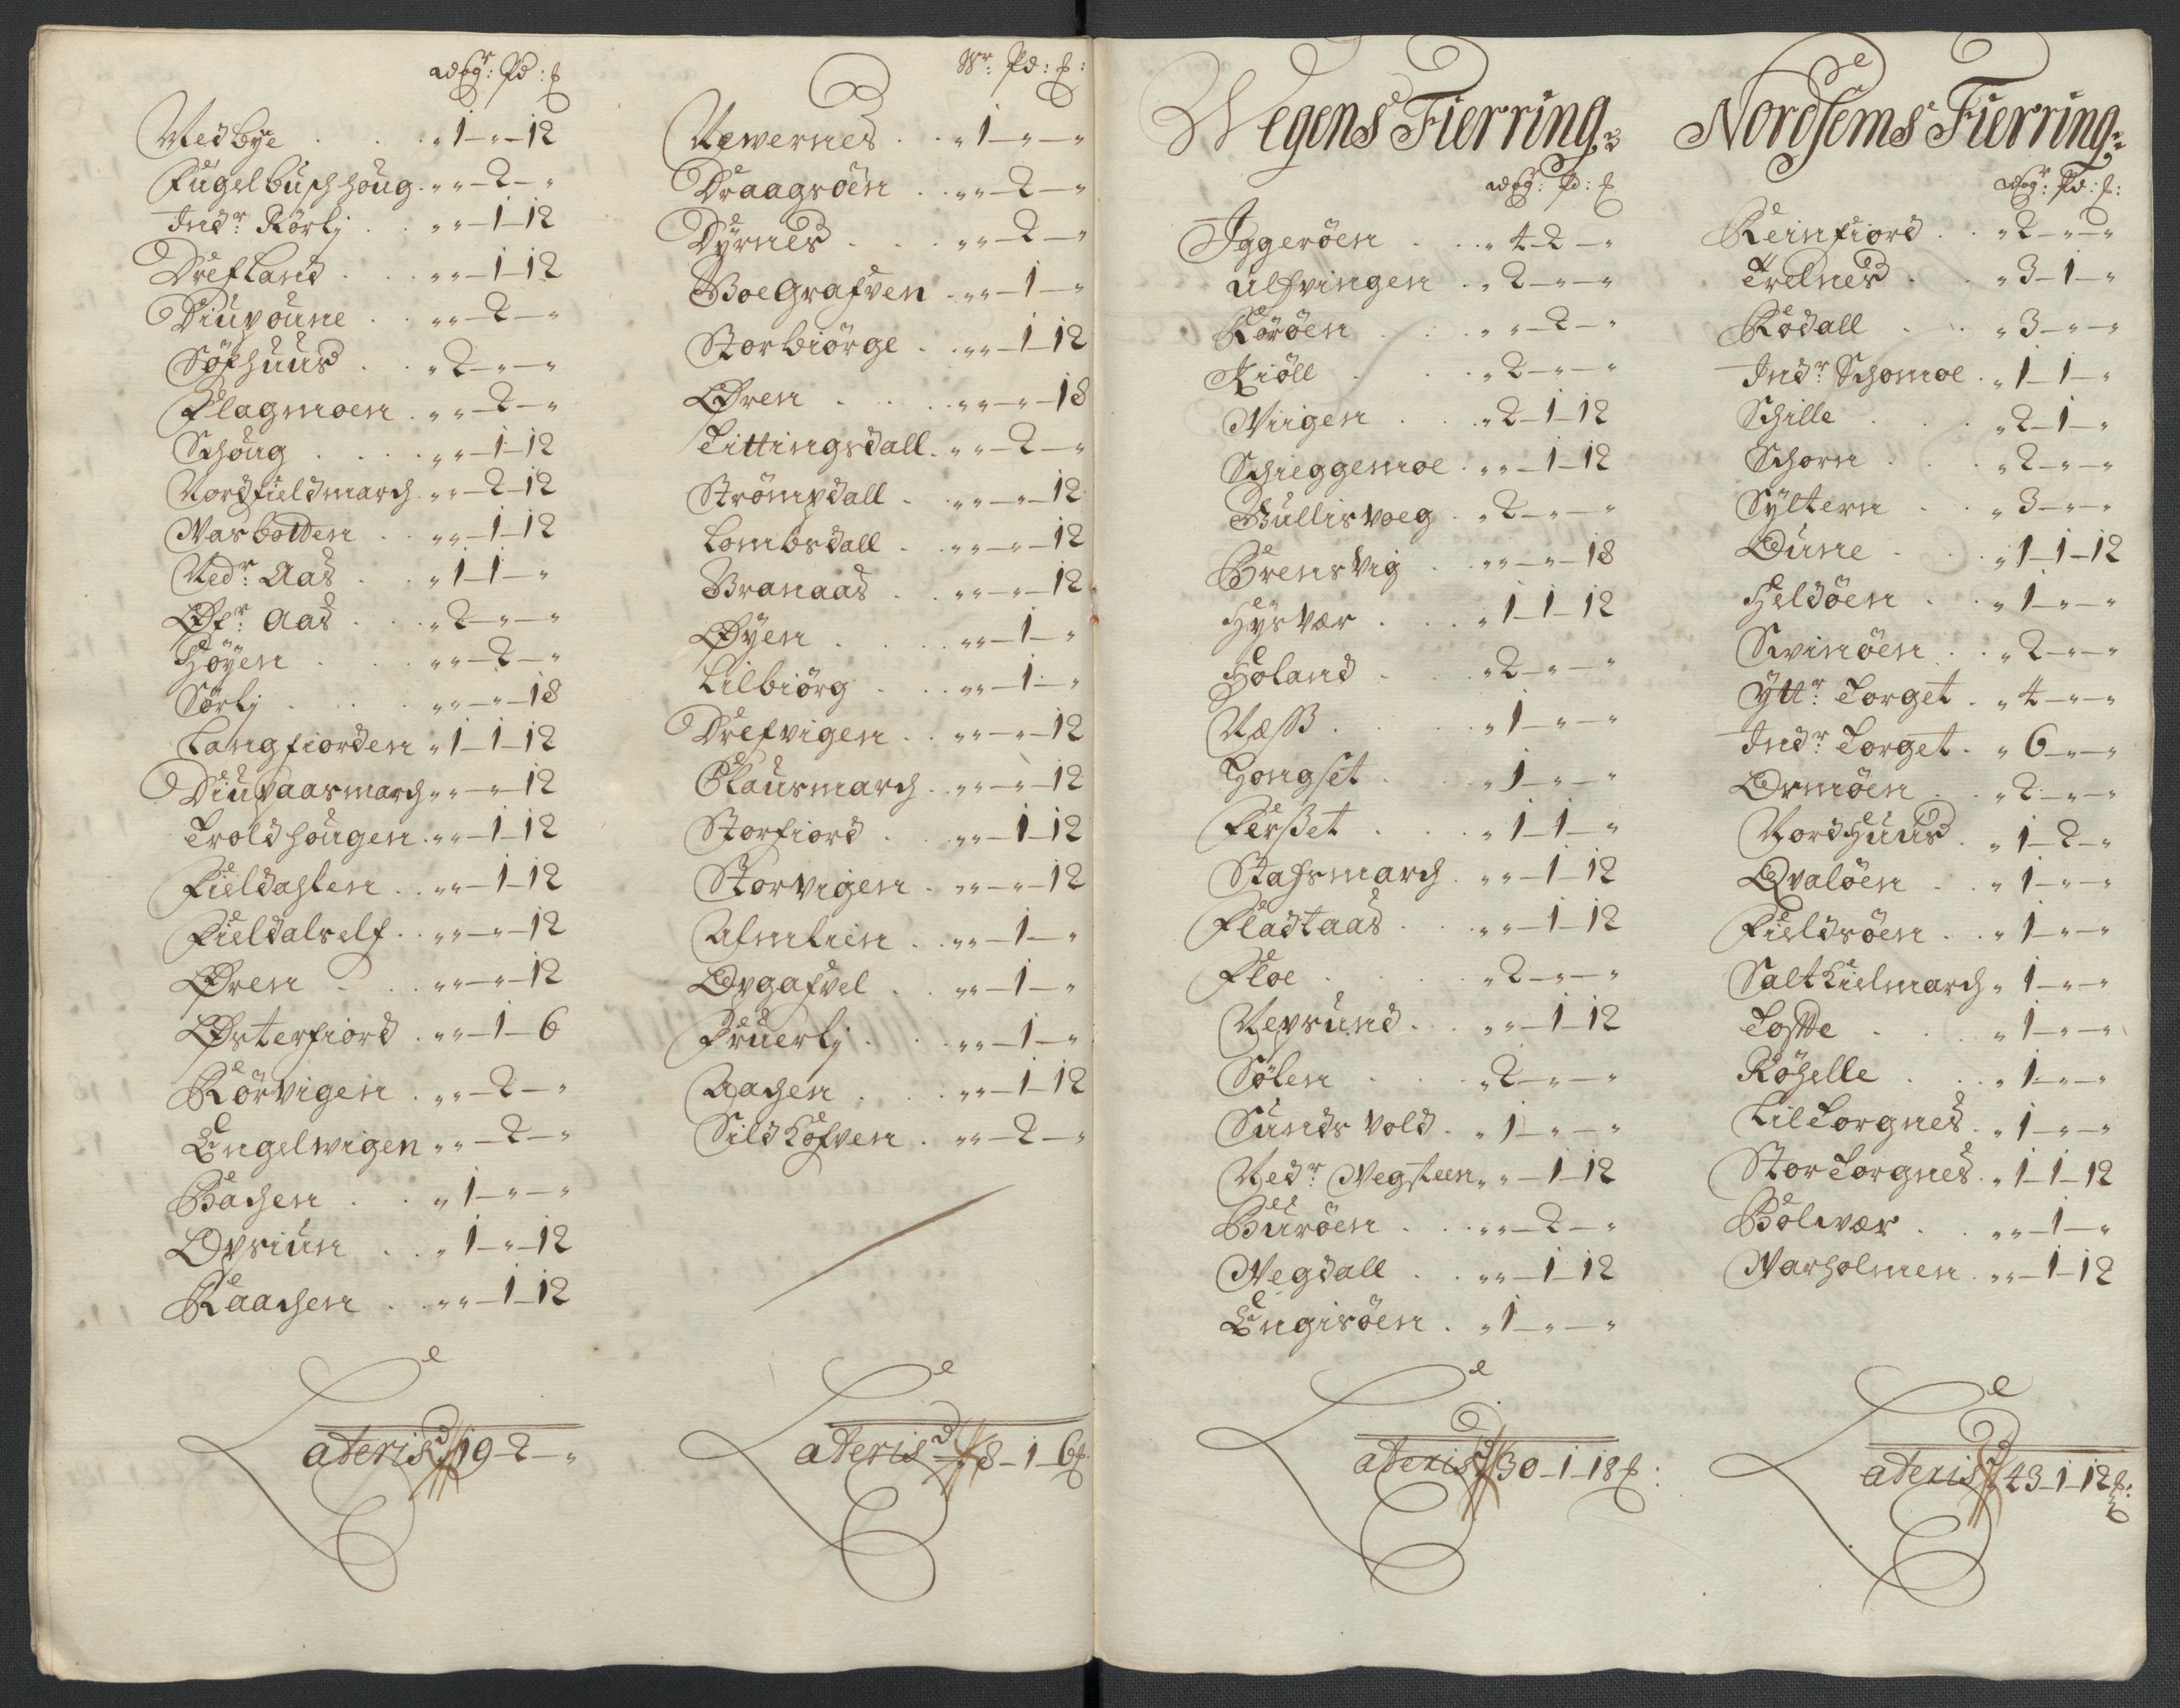 wog: Pd: £
Nedbye . . . „ 1 – „ – 12
Fugelbuschhoug . „ „ – 2 – „
Indr: Rørlj . . „ „ – 1 – 12
Drefland . . . „ „ – 1 – 12
Diupoune . . „ „ – 2 – „
Søfhuus . . „ 2 – „ – „
Flagmoen . „ „ – 2 – „
Schoug . . . „ „ – 1 – 12
Nordfieldmarch . „ „ – 2 – 12
Vasbotten . . „ „ – 1 – 12
Nedr: Aas . . „ 1 – 1 – „
Øfr: Aas . . „ 2 – „ – „
Høyen . . . „ „ – 2 – „
Sørlj . . . „ „ – „ – 18
Langfiorden „ 1 – 1 – 12
Diupaasmarch „ „ – „ – 12
Troldhougen . „ „ – 1 – 12
Fieldahlen . . „ „ – 1 – 12
Fieldalself . . „ „ – „ – 12
Øren . . . „ „ – „ – 12
Østerfiord . „ „ – 1 – 6
Rørvigen . „ „ – 2 – „
Engelwigen „ „ – 2 – „
Bachen . . „ 1 – „ – „
Opsiun . . „ 1 – „ – 12
Raachen . . „ „ – 1 – 12
Lateris 19 – 2 – „
Wr: Pd: £:
Nevernes . . „ 1 – „ – „
Draagsøen . . „ „ – 2 – „
Dyrnes . . . „ „ – 2 – „
Boegrafven . „ „ – 1 – „
Storbiørge . . „ „ – 1 – 12
Øren . . . „ „ – „ – 18
Tittingsdall . „ „ – 2 – „
Strømpdall . . „ „ – „ – 12
Lombsdall . . „ „ – „ – 12
Branaas . . „ „ – „ – 12
Øyen . . . „ „ – 1 – „
Lilbiørg . . . „ „ – 1 – „
Drefvigen . . „ „ – „ – 12
Clausmarch . . „ „ – „ – 12
Storfiord . . „ „ – 1 – 12
Storvigen . „ „ – „ – 12
Almlien . . „ „ – 1 – „
Opgafvel . . „ „ – 1 – „
Fruerlj . . . „ „ – 1 – „
Aachen . . . „ „ – 1 – 12
Sildhofven . „ „ – 2 – „
Lateris 8 – 1 – 6 £
Wegens Fierring:
wog: Pd: £
Iggerøen . . . „ 4 – 2 – „
Ulfvingen . . „ 2 – „ – „
Rørøen . . . „ „ – 2 – „
Kiøll . . . „ 2 – „ – „
Viigen . . . „ 2 – 1 – 12
Schieggemoe . „ „ – 1 – 12
Bullisvoeg . „ 2 – „ – „
Brensvig . „ „ – „ – 18
Hysvær . . . „ 1 – 1 – 12
Høland . . . „ 2 – „ – „
Næss . . . „ 1 – „ – „
Hongset . . . „ 1 – „ – „
Ferset . . . „ 1 – 1 – „
Stafsmarch . „ „ – 1 – 12
Fladtaas . . „ „ – 1 – 12
Floe . . . „ 2 – „ – „
Repsund . . „ „ – 1 – 12
Sølen . . . „ 2 – „ – „
Sundsvold . . „ 1 – „ – „
Nedr: Vegsteen „ „ – 1 – 12
Burøen . . . „ „ – 2 – „
Vegdall . . „ „ – 1 – 12
Engisøen . „ 1 – „ – „
Lateris 30 – 1 – 18 £:
Nordsems Fierring:
wog: Pd: £:
Reinfiord . . „ 2 – „ – „
Trelnes . . „ 3 – 1 – „
Rødall . . . „ 3 – „ – „
Indr: Schomoe . „ 1 – 1 – „
Schille . . . „ 2 – 1 – „
Schorn . . . „ 2 – „ – „
Syltern . . „ 3 – „ – „
Dune . . . „ 1 – 1 – 12
Heldøen . . „ 1 – „ – „
Svinøen . . „ 2 – „ – „
Yttr: Torget . „ 4 – „ – „
Indr: Torget . „ 6 – „ – „
Ormøen . . „ 2 – „ – „
Nordhuus . „ 1 – 2 – „
Qvaløen . . „ 1 – „ – „
Fieldsøen . . „ 1 – „ – „
Saltkielmarch „ 1 – „ – „
Tofte . . . „ 1 – „ – „
Røhelle . . . „ 1 – „ – „
LilTorgnes . „ 1 – „ – „
StorTorgnes . „ 1 – 1 – 12
Bolvær . . „ „ – 1 – „
Varholmen . „ „ – 1 – 12
Lateris 43 – 1 – 12 £: